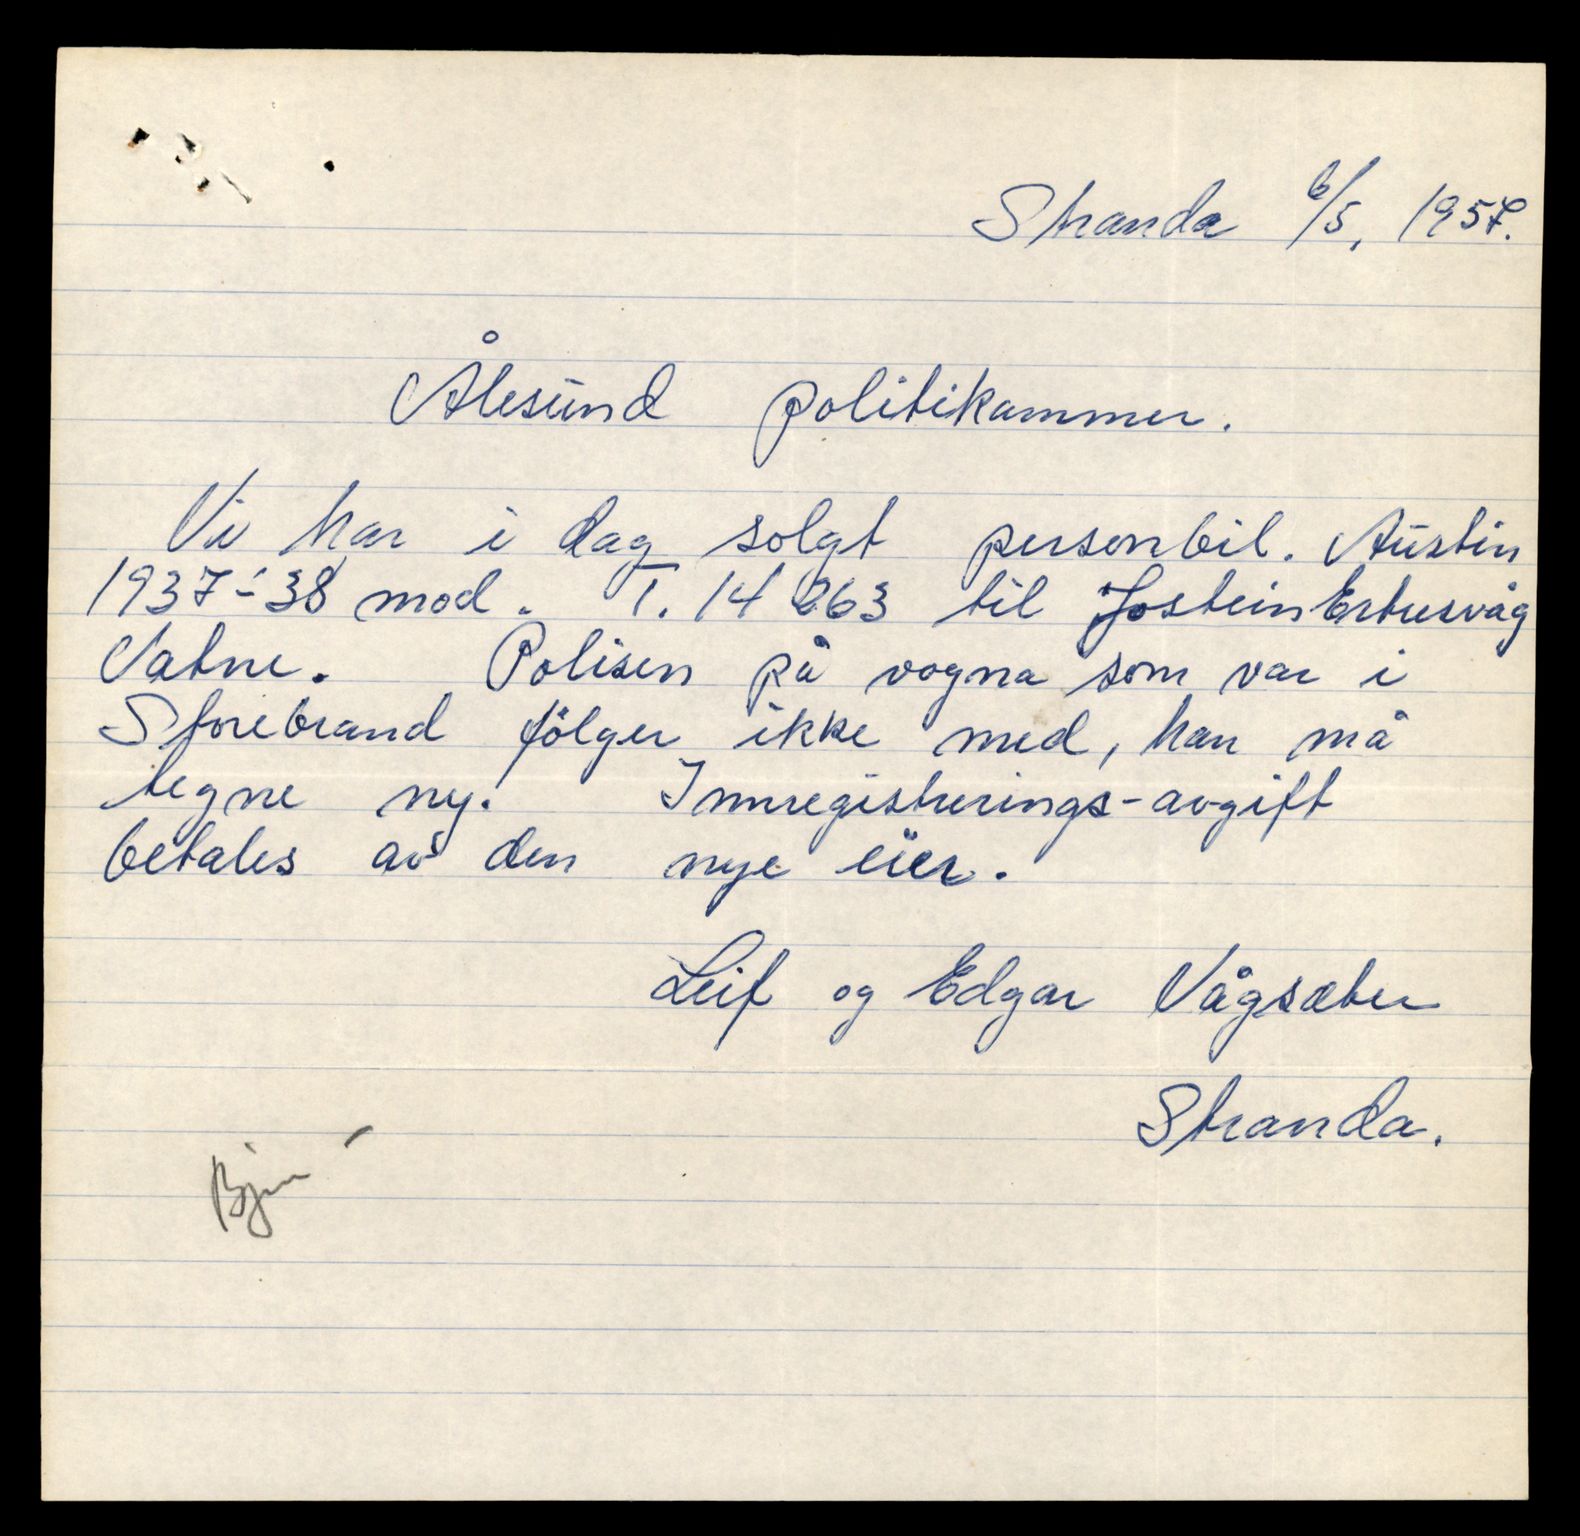 Stranda 6/5, 1957.
Ålesund politikammer.
Vi har i dag solgt personbil. Austin
1937-'38 mod. T. 14263 til Jostein Ertresvåg
Vatne. Polisen på vogna som var i
Storebrand følger ikke med, han må
tegne ny. Innregistrerings-avgift
betales av den nye eier.
Leif og Edgar Vågsæter
Stranda.